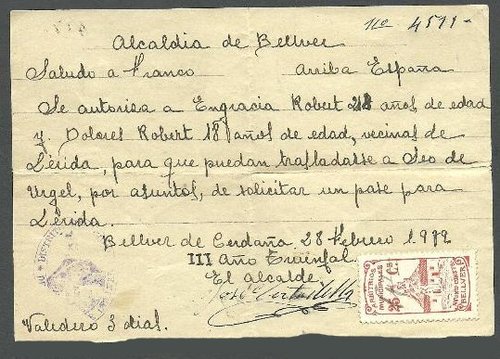 No 4511-
Alcaldia de Bellver
Saludo a Franco Arriba España
Se autorisa a Engracia Robert 21 años de edad
y Dolores Robert 18 años de edad, vecinas de
Lérida, para que puedan trasladarse a Seo de
Urgel, por asuntos, de solicitar un pase para
Lérida.
Bellver de Cerdaña, 28 Febrero 1.939
III Año Triunfal
El Alcalde,
José
Valedero 3 dias.
DISTRI
ARBITRIOS
MUNICIPALES
25 Cs
BELLVER